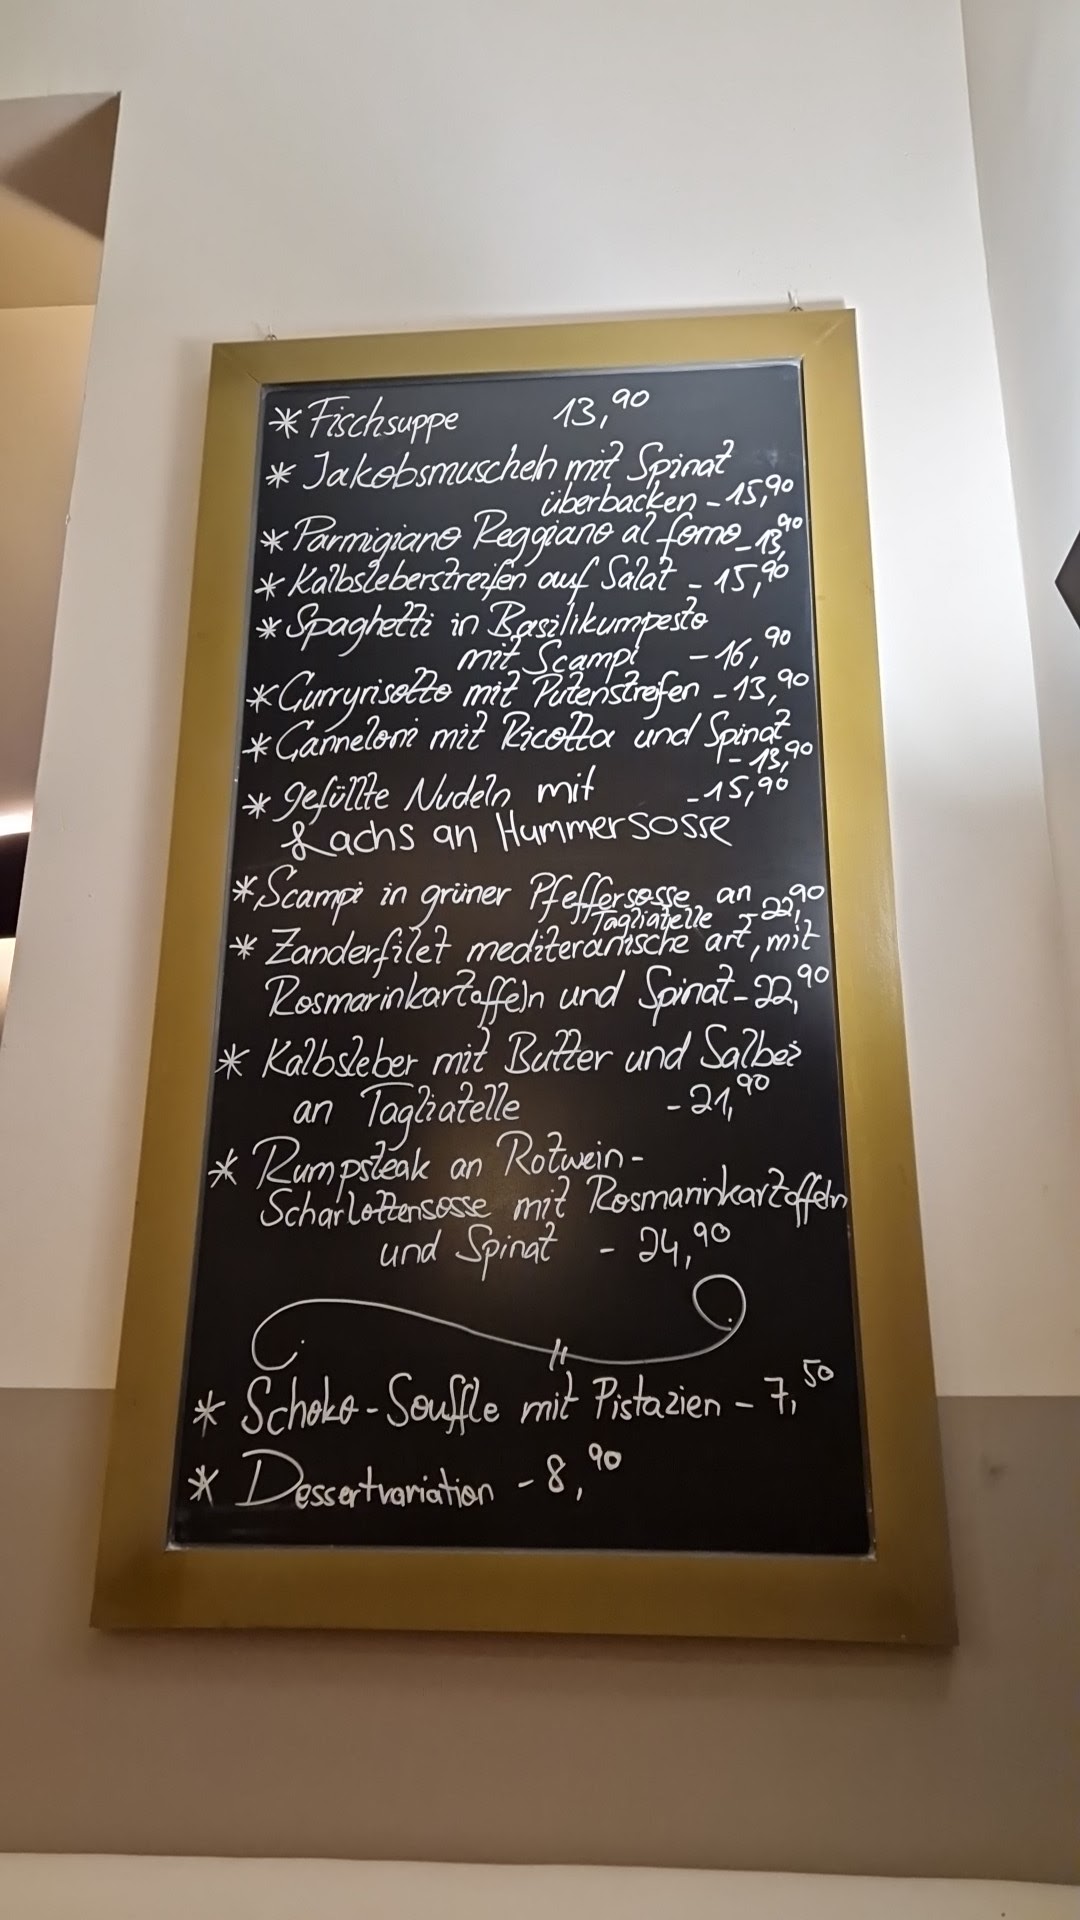 * Fischsuppe 13,90
* Jakobsmuscheln mit Spinat
überbacken - 15,90
* Parmigiano Reggiano al forno - 13,90
* Kalbsleberstreifen auf Salat - 15,90
* Spaghetti in Basilikumpesto
mit Scampi - 16,90
* Curryrisotto mit Putenstrefen - 13,90
* Canneloni mit Ricotta und Spinat
- 13,90
* gefüllte Nudeln mit - 15,90
Lachs an Hummersosse
* Scampi in grüner Pfeffersosse an
Tagliatelle - 22,90
* Zanderfilet mediteranische art, mit
Rosmarinkartoffeln und Spinat - 22,90
* Kalbsleber mit Butter und Salbei
an Tagliatelle - 21,90
* Rumpsteak an Rotwein-
Scharlottensosse mit Rosmarinkartoffeln
und Spinat - 24,90
* Schoko-Souffle mit Pistazien - 7,50
* Dessertvariation - 8,90